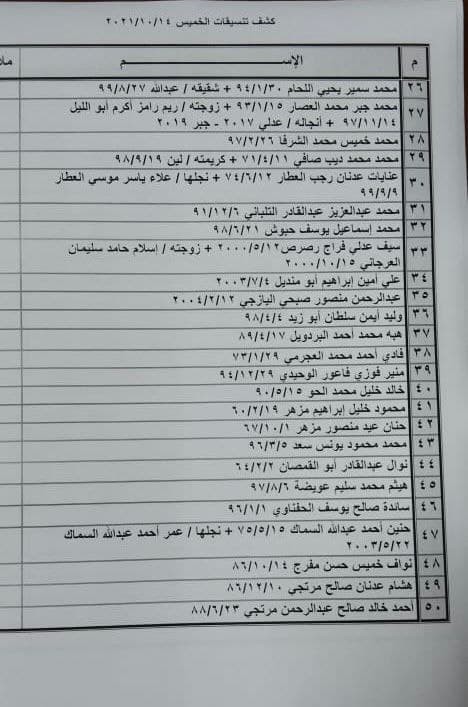 كشف تنسيقات الخميس ٢٠٢١/١٠/١٤
م الإســـــــم
٢٦ محمد سمير يحيي اللحام ٩٤/١/٣٠ + شقيقه / عبدالله ٩٩/٨/٢٧
٢٧ محمد جبر محمد العصار ٩٣/١/١٥ + زوجته / ريم رامز أكرم أبو الليل
٩٧/١١/١٤ + أنجاله / عدلي ٢٠١٧ - جبر ٢٠١٩
٢٨ محمد خميس محمد الشرفا ٩٧/٢/٢٦
٢٩ محمد محمد ديب صافي ٧١/٤/١١ + كريمته / لين ٩٨/٩/١٩
٣٠ عنايات عدنان رجب العطار ٧٤/٦/١٢ + نجلها / علاء ياسر موسي العطار
٩٩/٩/٩
٣١ محمد عبدالعزيز عبدالقادر التلباني ٩١/١٢/٦
٣٢ محمد إسماعيل يوسف حبوش ٩٨/٦/٢١
٣٣ سيف عدلي فراج رصرص ٢٠٠٠/٥/١٢ + زوجته / إسلام حامد سليمان
العرجاني ٢٠٠٠/١٠/١٥
٣٤ علي أمين إبراهيم أبو منديل ٢٠٠٣/٧/٤
٣٥ عبدالرحمن منصور صبحي اليازجي ٢٠٠٤/٢/١٢
٣٦ وليد أيمن سلطان أبو زيد ٩٨/٤/٤
٣٧ هبه محمد أحمد البردويل ٨٩/٤/١٧
٣٨ فادي أحمد محمد العجرمي ٧٣/١/٢٩
٣٩ منير فوزي فاعور الوحيدي ٩٤/١٢/٢٩
٤٠ خالد خليل محمد الحو ٩٠/٥/١٥
٤١ محمود خليل إبراهيم مزهر ٦٠/٢/١٩
٤٢ حنان عيد منصور مزهر ٦٧/١٠/١
٤٣ محمد محمود يونس سعد ٩٦/٣/٥
٤٤ نوال عبدالقادر أبو القمصان ٦٤/٢/٢
٤٥ هيثم محمد سليم عويضة ٩٧/٨/٦
٤٦ سائدة صالح يوسف الحفناوي ٩٦/١/١
٤٧ حنين أحمد عبدالله السماك ٧٥/٥/١٥ + نجلها / عمر أحمد عبدالله السماك
٢٠٠٣/٥/٢٢
٤٨ نواف خميس حسن مفرج ٨٦/١٠/١٤
٤٩ هشام عدنان صالح مرتجي ٨٦/١٢/١٠
٥٠ أحمد خالد صالح عبدالرحمن مرتجي ٨٨/٦/٢٣